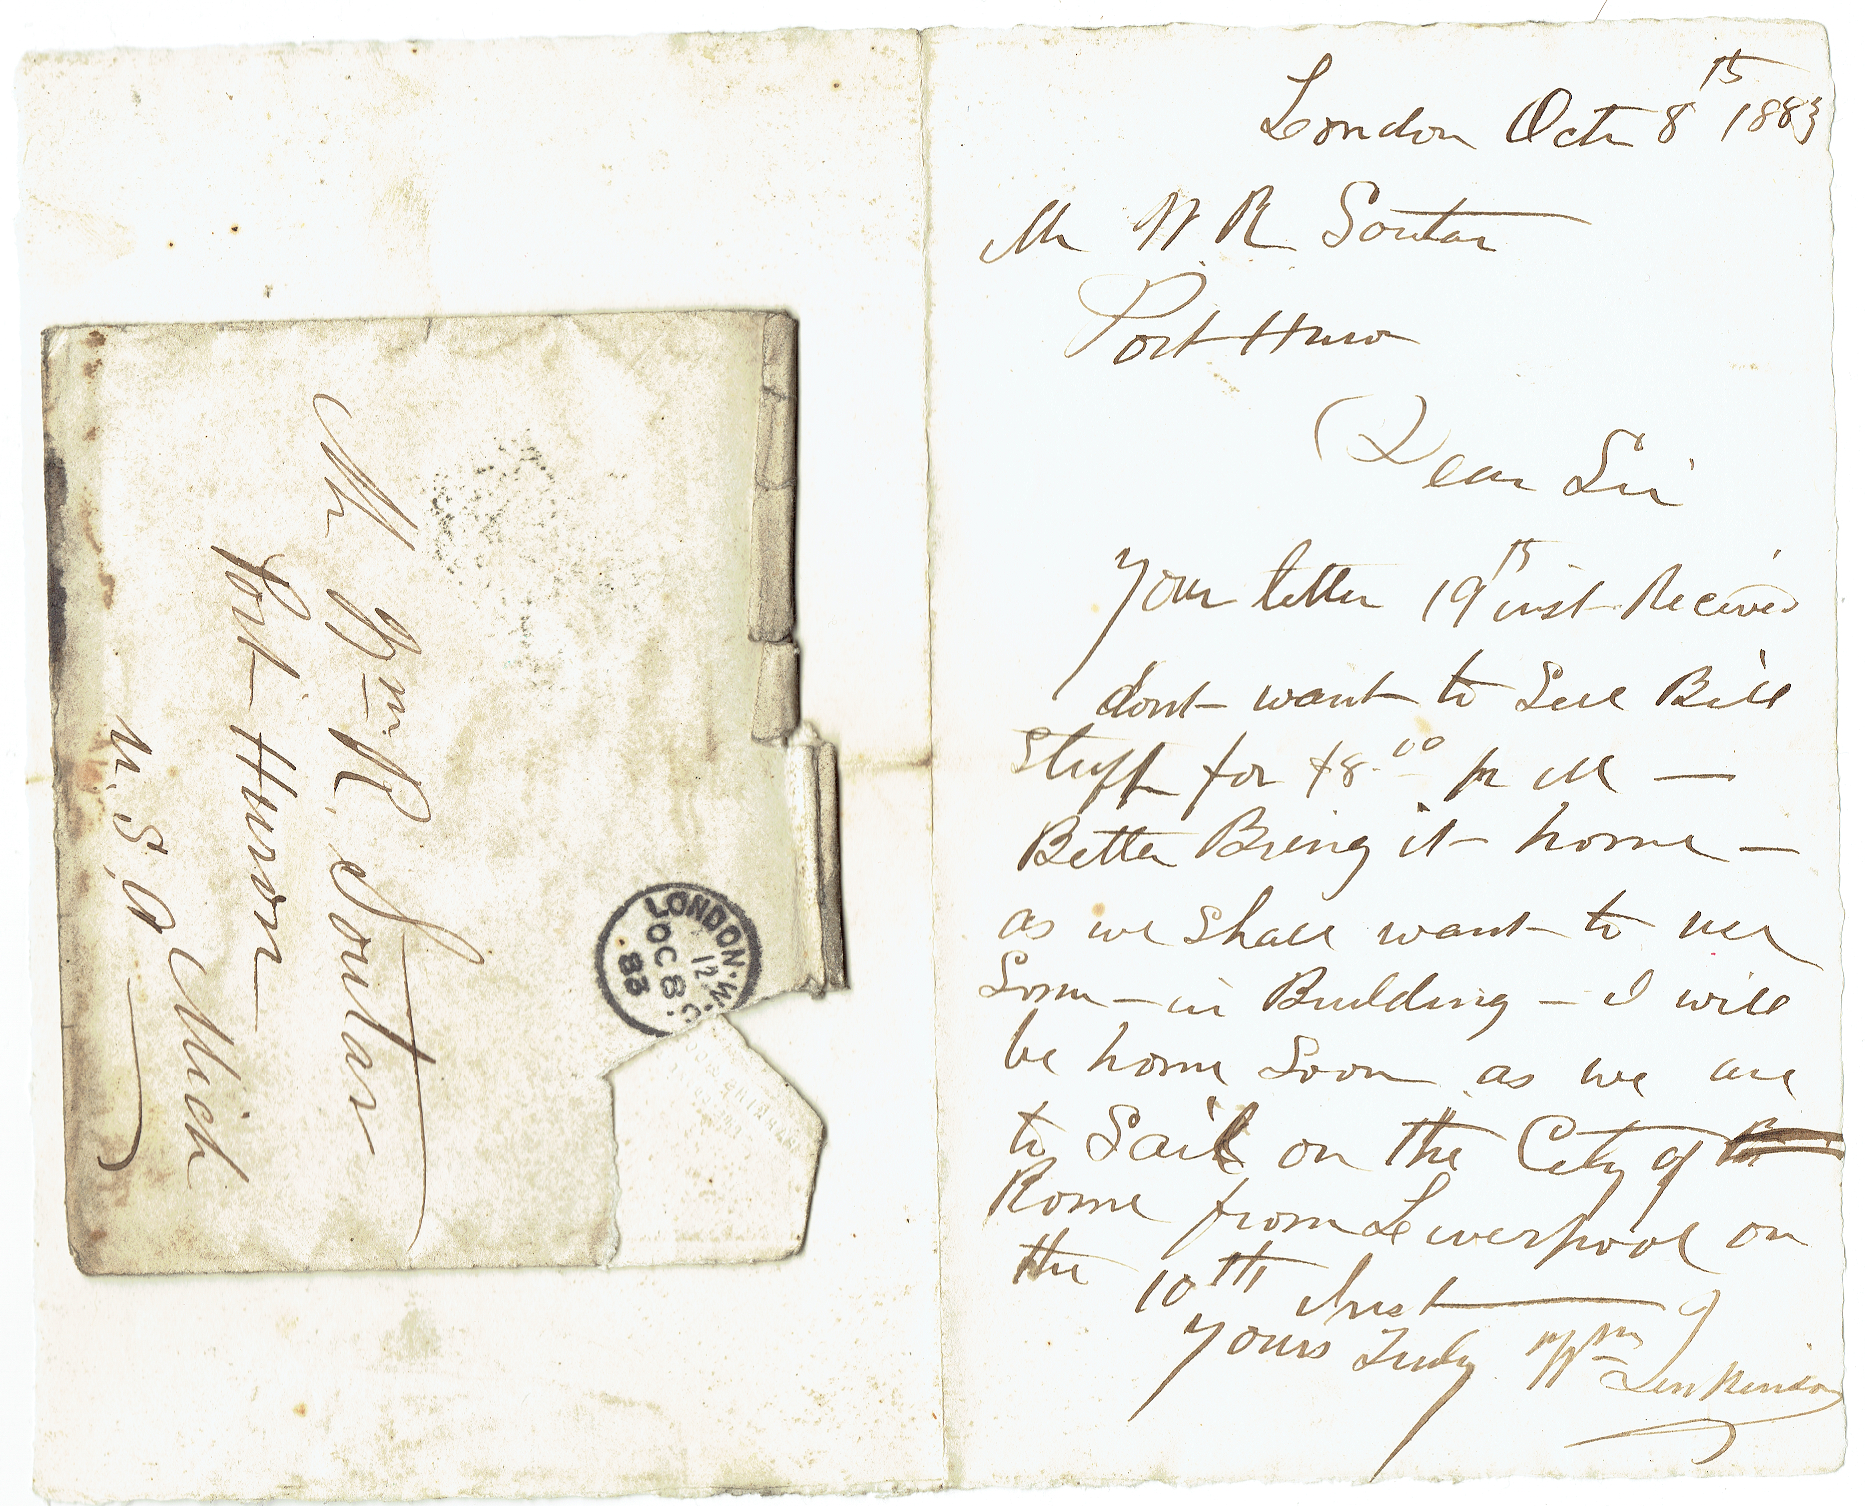 London Octr 8th 1883
Mr W. R Soutar
Port Huron
Dear Sir
Your letter 19th inst Received
dont want to Sell Bill
Stuff for $8.00 pr M —
Better Bring it home —
as we Shall want to use
Some — in Building — I will
be home Soon as we are
to Sail on the City of
Rome from Liverpool on
the 10th Inst
Yours Truly Wm Jenkinson
Mr Wm R. Soutar
Port Huron
Mich
U. S. A
LONDON. W.C.
12
OC 8
83